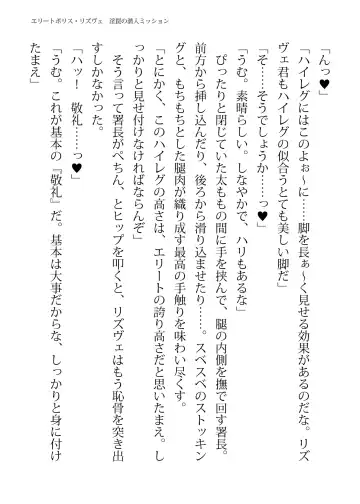 エリートポリス・リズヴェ　淫罠の潜入ミッション
「んっ♥」
「ハイレグにはこのよぉ～に……脚を長ぁ～く見せる効果があるのだな。リズ
ヴェ君もハイレグの似合うとても美しい脚だ」
「そ……そうでしょうか……っ♥」
「うむ。素晴らしい。しなやかで、ハリもあるな」
ぴったりと閉じていた太ももの間に手を挟んで、腿の内側を撫で回す署長。
前方から挿し込んだり、後ろから滑り込ませたり……。スベスベのストッキン
グと、もちもちとした腿肉が織り成す最高の手触りを味わい尽くす。
「とにかく、このハイレグの高さは、エリートの誇り高さだと思いたまえ。し
っかりと見せ付けなければならんぞ」
そう言って署長がぺちん、とヒップを叩くと、リズヴェはもう恥骨を突き出
すしかなかった。
「ハッ！　敬礼……っ♥」
「うむ。これが基本の『敬礼』だ。基本は大事だからな、しっかりと身に付け
たまえ」